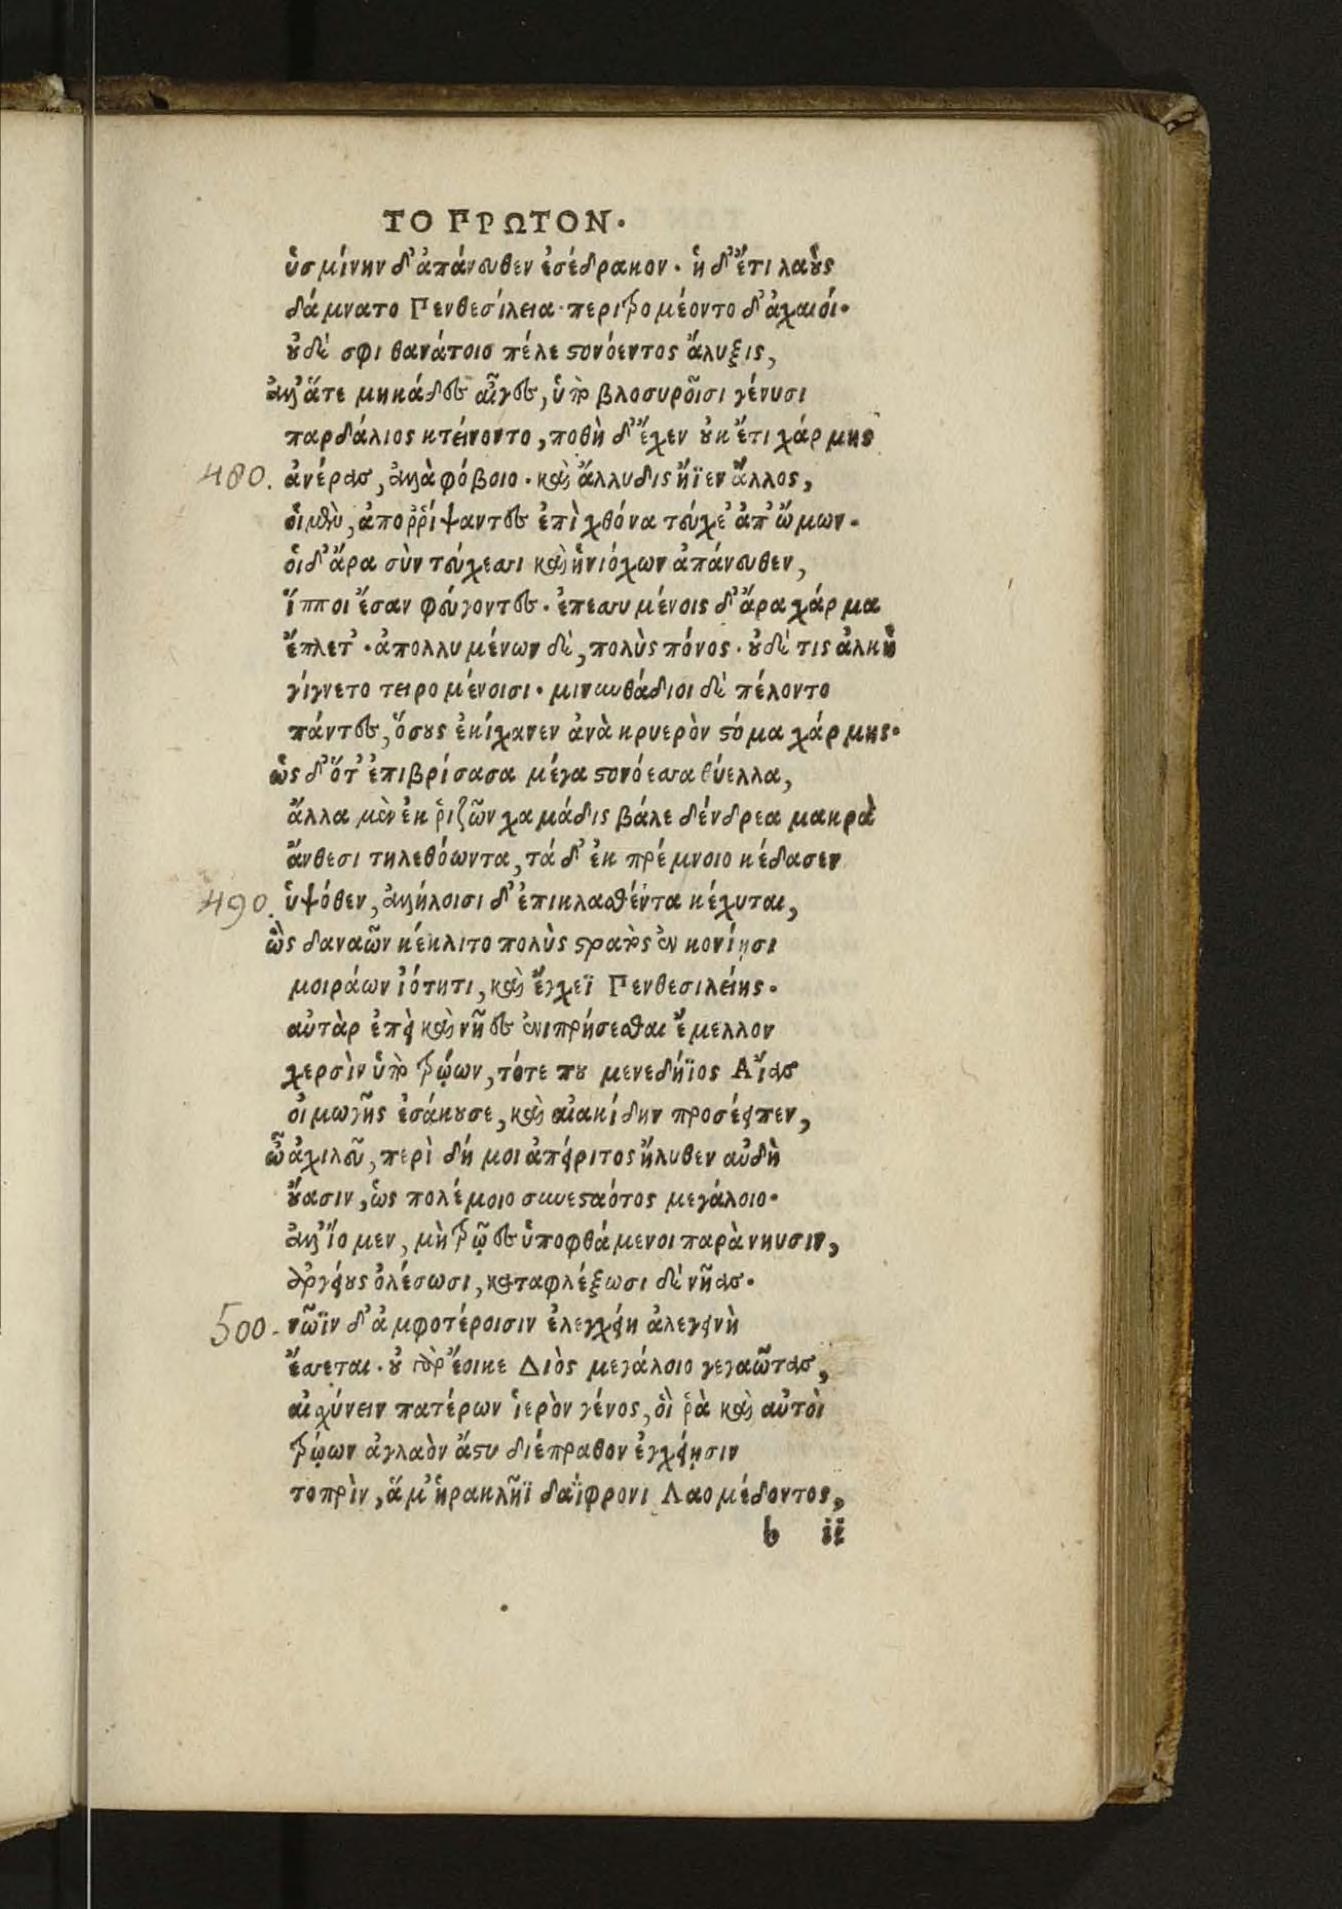 ΤΟ ΠΡΩΤΟΝ.
ὑσμίνην δ᾽ ἀπάνευθεν ἐσέδρακον· ἡ δ᾽ ἔτι λαοὺς
δάμνατο Πενθεσίλεια· περιτρομέοντο δ᾽ ἀχαιοί·
οὐδέ σφι θανάτοιο πέλε στονόεντος ἄλυξις,
ἀλλ᾽ ἅτε μηκάδες αἶγες, ὑπὸ βλοσυροῖσι γένυσι
παρδάλιος κτείνοντο, ποθὴ δ᾽ ἔχεν οὐκ ἔτι χάρμης
480. ἀνέρας, ἀλλὰ φόβοιο· καὶ ἄλλυδις ἤϊεν ἄλλος,
οἱ μὲν, ἀπορῥίψαντες ἐπὶ χθόνα τεύχε᾽ ἀπ᾽ ὤμων·
οἱ δ᾽ ἄρα σὺν τεύχεσσι καὶ ἡνιόχων ἀπάνευθεν,
ἵπποι ἔσαν φεύγοντες· ἐπεσσυμένοις δ᾽ ἄρα χάρμα
ἔπλετ᾽· ἀπολλυμένων δὲ, πολὺς πόνος· οὐδέ τις ἀλκὴ
γίγνετο τειρομένοισι· μινυνθάδιοι δὲ πέλοντο
πάντες, ὅσους ἐκίχανεν ἀνὰ κρυερὸν στόμα χάρμης·
ὡς δ᾽ ὅτ᾽ ἐπιβρίσασα μέγα στονόεσσα θύελλα,
ἄλλα μὲν ἐκ ῥιζῶν χαμάδις βάλε δένδρεα μακρὰ
ἄνθεσι τηλεθόωντα, τά δ᾽ ἐκ πρέμνοιο κέδασεν
490. ὑψόθεν, ἀλλήλοισι δ᾽ ἐπικλασθέντα κέχυται,
ὣς δαναῶν κέκλιτο πολὺς στρατὸς ἐν κονίῃσι
μοιράων ἰότητι, καὶ ἔγχεϊ Πενθεσιλείης·
αὐτὰρ ἐπεὶ καὶ νῆες ἐνιπρήσεσθαι ἔμελλον
χερσὶν ὑπὸ τρώων, τότε που μενεδήϊος Αἴας
οἰμωγῆς ἐσάκουσε, καὶ αἰακίδην προσέειπεν,
ὦ ἀχιλεῦ, περὶ δή μοι ἀπείριτος ἤλυθεν αὐδὴ
οὔασιν, ὡς πολέμοιο συνεσταότος μεγάλοιο·
ἀλλ᾽ ἴομεν, μὴ τρῶες ὑποφθάμενοι παρὰ νηυσὶν,
ἀργείους ὀλέσωσι, καταφλέξωσι δὲ νῆας·
500. νῶϊν δ᾽ ἀμφοτέροισιν ἐλεγχείη ἀλεγεινὴ
ἔσσεται· οὐ γὰρ ἔοικε Διὸς μεγάλοιο γεγαῶτας,
αἰσχύνειν πατέρων ἱερὸν γένος, οἳ ῥὰ καὶ αὐτοὶ
τρώων ἀγλαὸν ἄστυ διέπραθον ἐγχείῃσιν
τοπρὶν, ἅμ᾽ ἡρακλῆϊ δαΐφρονι Λαομέδοντος,
b ii